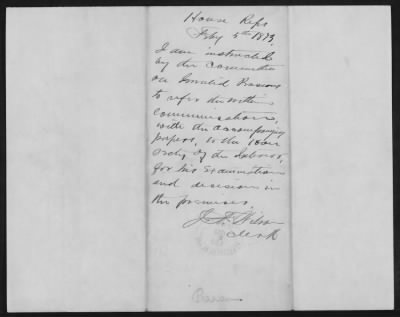 House Reps
Feby 5th 1873
I am instructed
by the Committee
on Invalid Pensions
to refer the within
communication,
with the accompanying
papers, to the Hon
Secty of the Interior,
for his examination
and decision in
the premises.
J. F. Wilson
Clerk